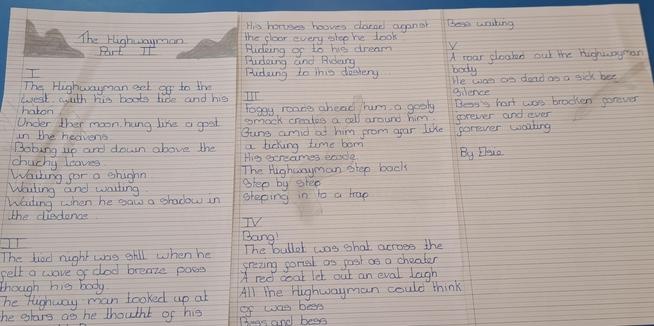 The Highwayman
Part II
I
The Highwayman set off to the
west with his boots tide and his
haton
Under ther moon hung like a gost
in the heavens.
Bobing up and down above the
chuchy leaves.
Waiting for a shighn
Waiting and waiting.
Waiting when he saw a shadow in
the disdence
II
The tied night was still when he
felt a wave of clod breaze pows
though his body.
The Highway man looked up at
he stars as he thouht of his
His horses hooves clared against
the floor every step he took
Rideing of to his dream
Rideing and Rideing
Rideing to this desteny...
III
Foggy roads ahead him. a gosly
smock creates a cell around him.
Guns amid at him from afar like
a ticking time bom
His screames ecode.
The Highwayman step back
Step by step
Steping in to a trap
IV
Bang!
The bullet was shot across the
frezing forist as fast as a cheater
A red coat let out an eval laugh
All the Highwayman could think
of was bess
Bess and bess
Bess waiting
V
A roar floated out the Highwayman
body
He was as dead as a sick bee
Silence
Bess's hart was brocken forever
forever and ever
forever waiting
By Elsie